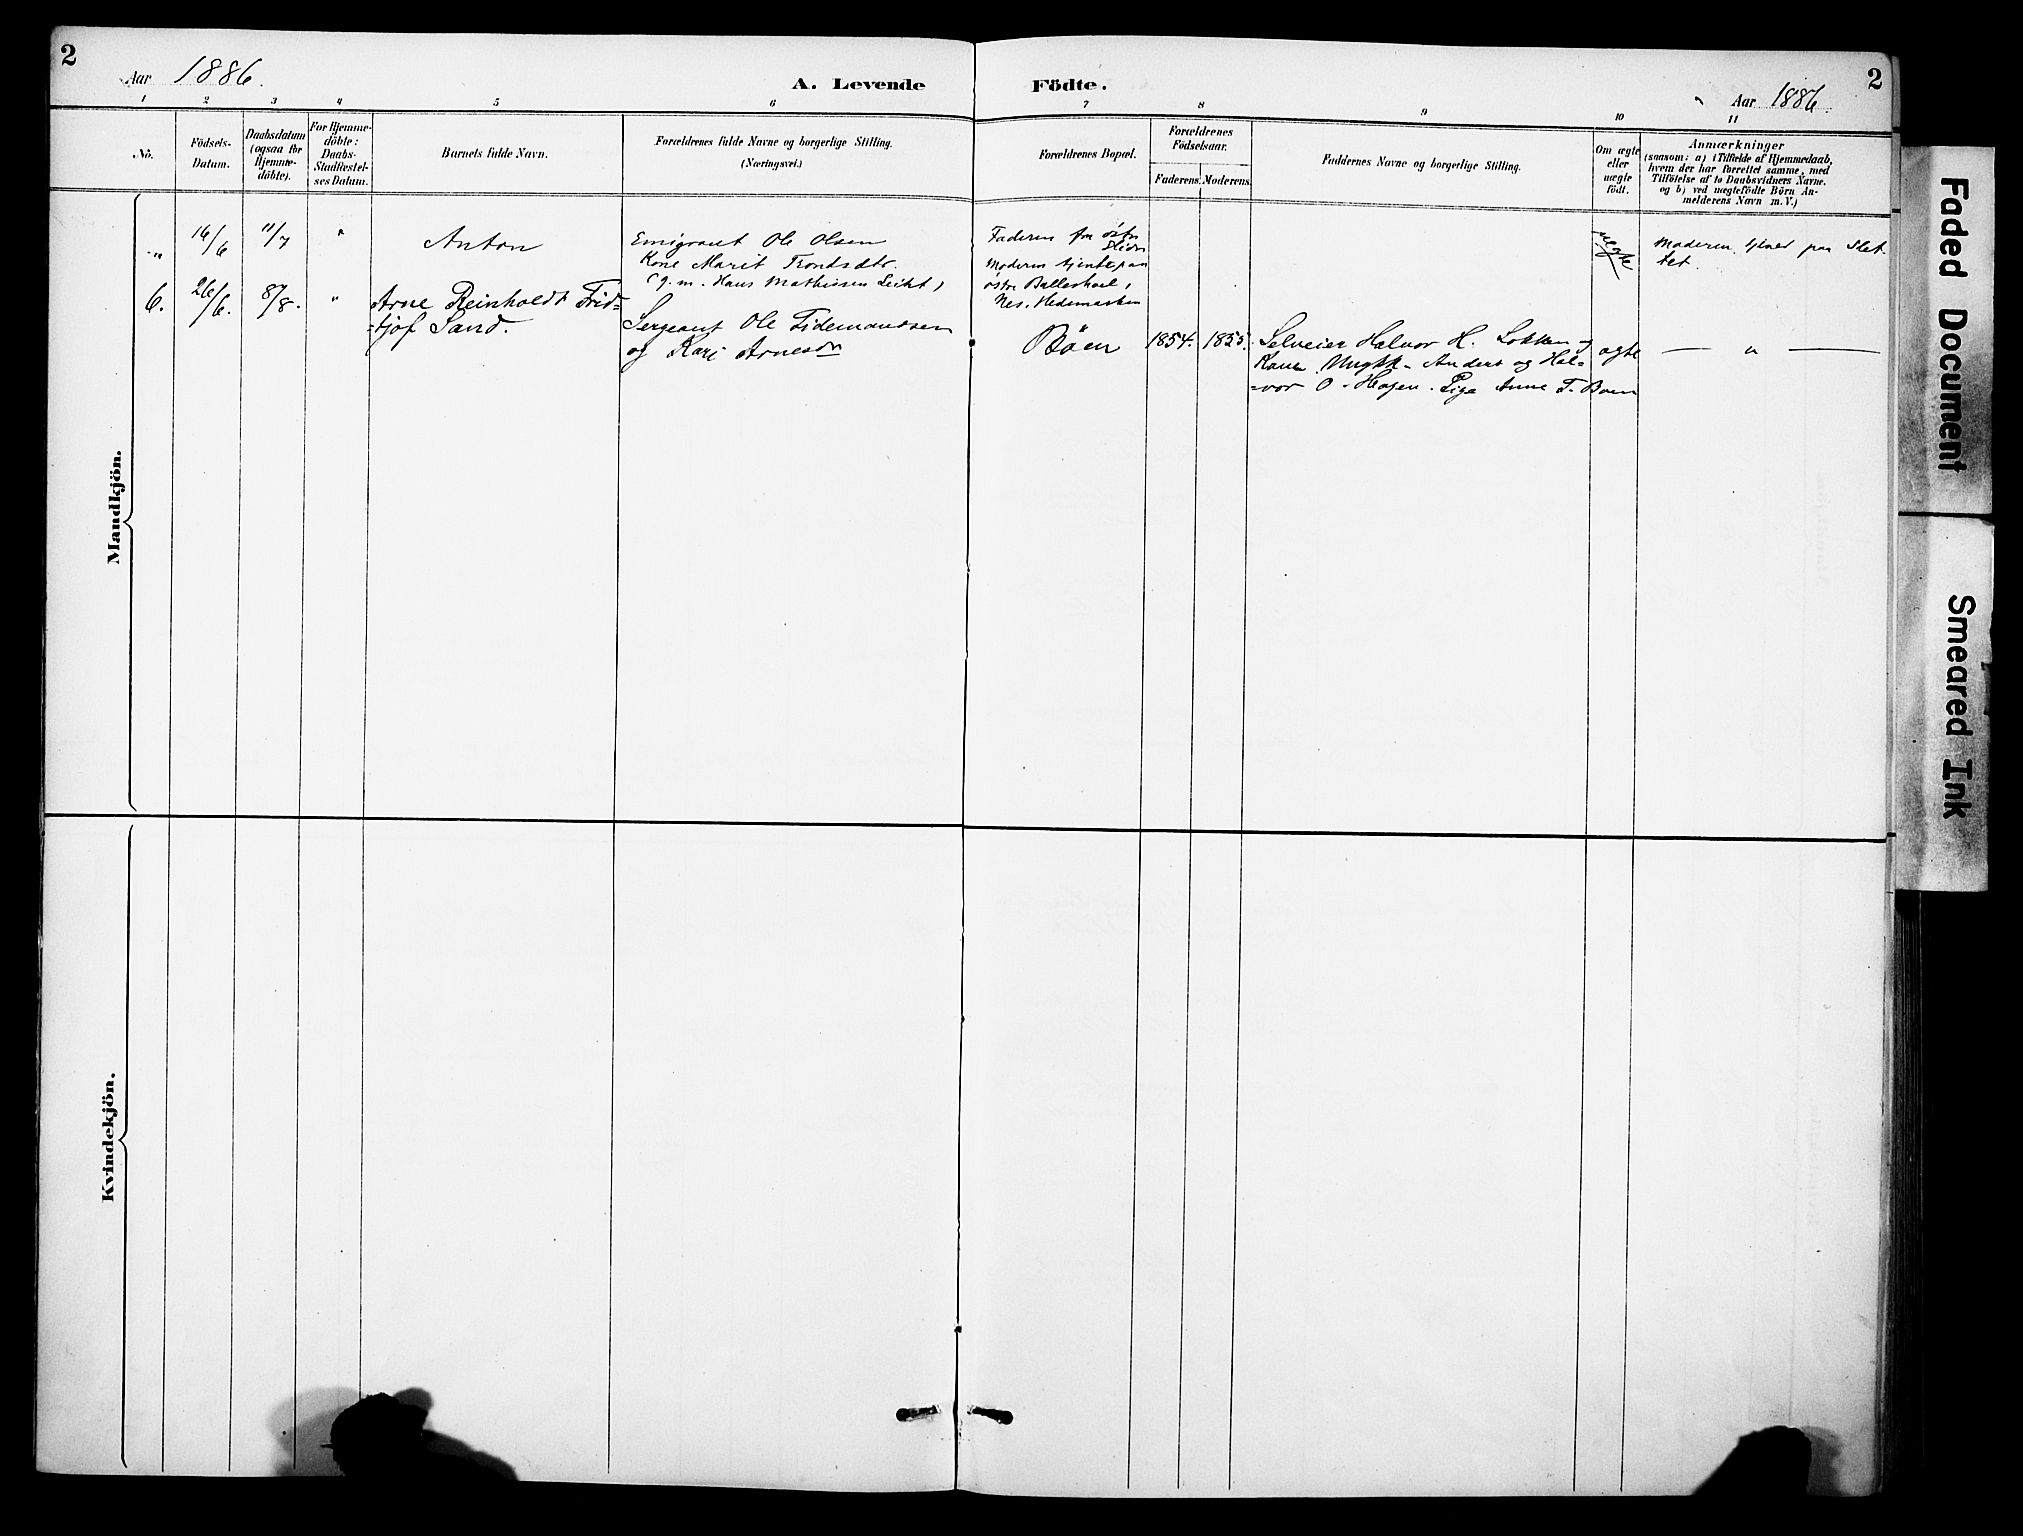 2
Aar 1886.
A. Levende Födte.
Aar 1886.
2
1 2 3 4 5 6 7 8 9 10 11
No.
Födsels-
Datum.
Daabsdatum
(ogsaa for
Hjemme-
döbte).
For Hjemme-
döbte:
Daabs-
Stadfæstel-
ses Datum.
Barnets fulde Navn.
Forældrenes fulde Navne og borgerlige Stilling.
(Næringsvei.)
Forældrenes Bopæl.
Forældrenes
Födselsaar.
Faderens. Moderens.
Faddernes Navne og borgerlige Stilling.
Om ægte
eller
uægte
født.
Anmærkninger
(saasom: a) i Tilfælde af Hjemmedaab,
hvem der har forrettet samme, med
Tilföielse af to Daabsvidners Navne.
og b) ved uægtefödte Börn An-
melderens Navn m. V.)
Mandkjön.
„ 16/6 11/7 "
Anton
Emigrant Ole Olsen
Kone Marit Trondsdtr.
(g. m. Hans Mathiesen
Faderen fra östre
Slidre
Moderen tjente paa
östre
Nes, Hedemarken
uægte
Moderen tjener paa Slet-
tet.
6. 26/6. 8/8. "
Arne Reinholdt Frid-
=tjof Sand.
Sergeant Ole Tidemandsen
og Kari Arnesdr
Böen
1854. 1855.
Selveier Halvor H. Løkken og
Kone. Ungkk. Anders og Hal-
=vor O. Hagen. Pige Anne T. Böen
ægte
— " —
Kvindekjön.
Faded Document
Smeared Ink